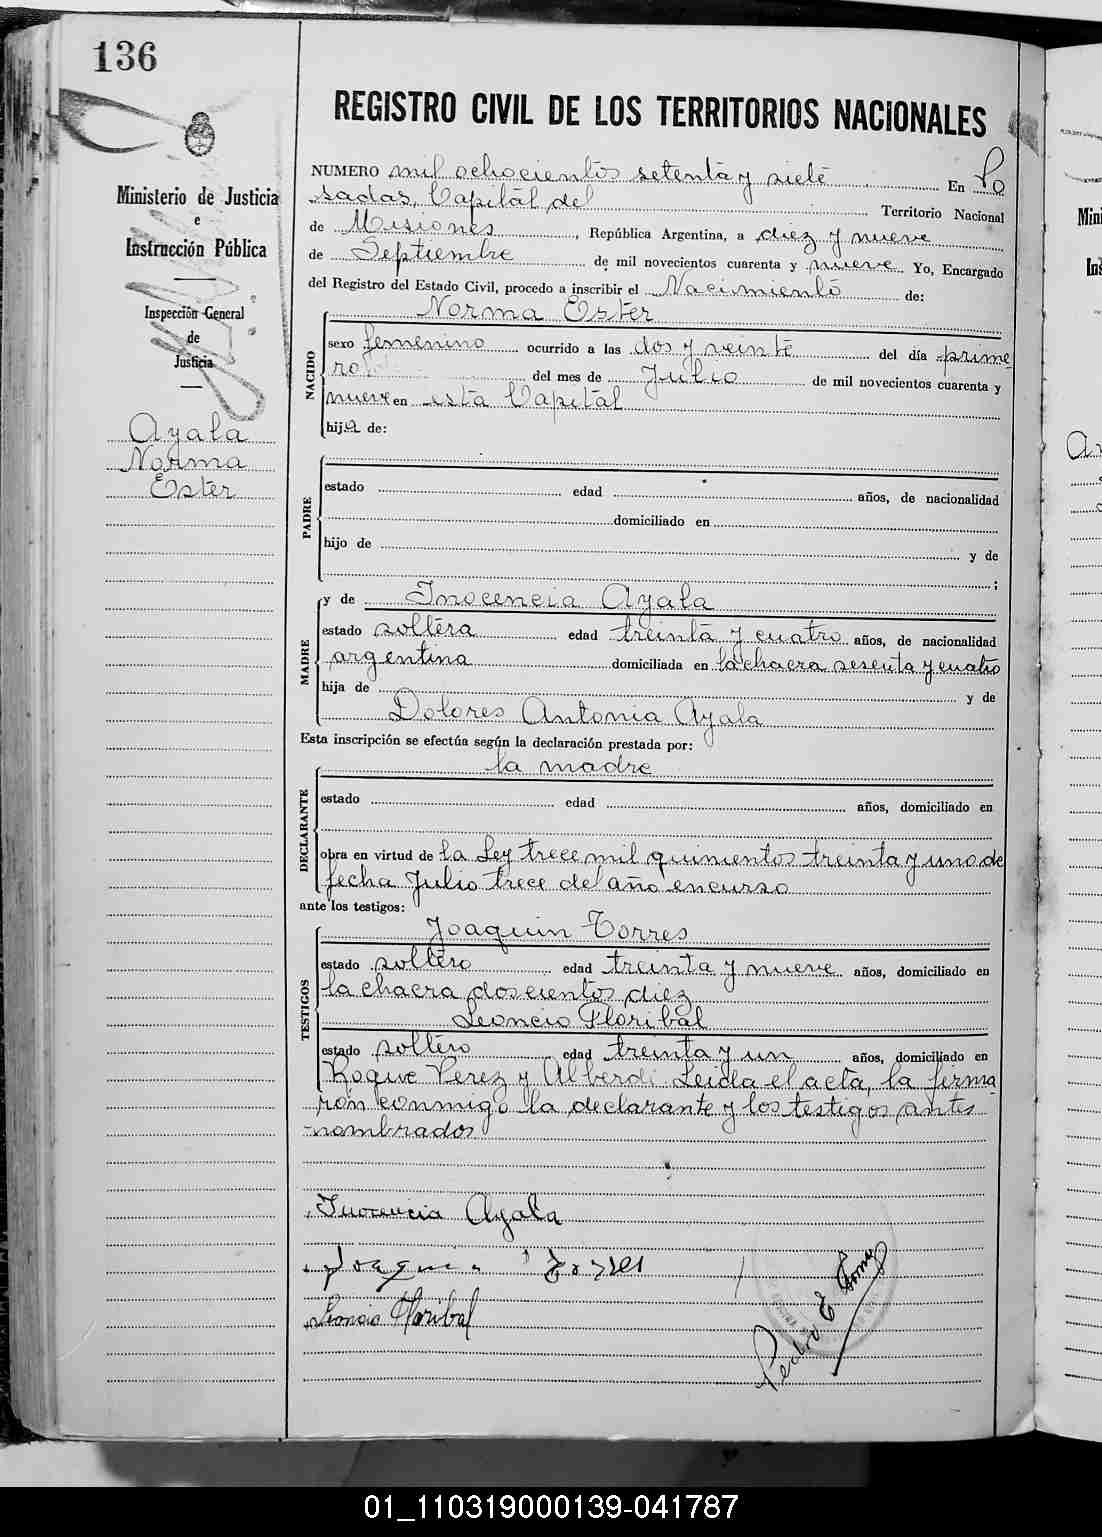 136
REGISTRO CIVIL DE LOS TERRITORIOS NACIONALES
Ministerio de Justicia
e
Instrucción Pública
Inspección General
de
Justicia
Ayala
Norma
Ester
NUMERO mil ochocientos setenta y siete En Po
sadas, Capital del Territorio Nacional
de Misiones, República Argentina, a diez y nueve
de Septiembre de mil novecientos cuarenta y nueve Yo, Encargado
del Registro del Estado Civil, procedo a inscribir el Nacimiento de:
Norma Ester
NACIDO
sexo femenino ocurrido a las dos y veinte del día prime
ro del mes de Julio de mil novecientos cuarenta y
nueve en esta Capital
hija de:
PADRE
estado edad años, de nacionalidad
domiciliado en
hijo de y de
;
MADRE
y de Inocencia Ayala
estado soltera edad treinta y cuatro años, de nacionalidad
argentina domiciliada en la chacra sesenta y cuatro
hija de y de
Dolores Antonia Ayala
Esta inscripción se efectúa según la declaración prestada por:
la madre
DECLARANTE
estado edad años, domiciliado en
obra en virtud de la Ley trece mil quinientos treinta y uno de
fecha Julio trece del año en curso
ante los testigos:
Joaquin Torres
TESTIGOS
estado soltero edad treinta y nueve años, domiciliado en
la chacra doscientos diez
Leoncio Floribal
estado soltero edad treinta y un años, domiciliado en
Roque Perez y Alberdi. Leida el acta, la firma
ron conmigo la declarante y los testigos antes
nombrados
Inocencia Ayala
Joaquin Torres
Leoncio Floribal
Pedro E
01_110319000139-041787